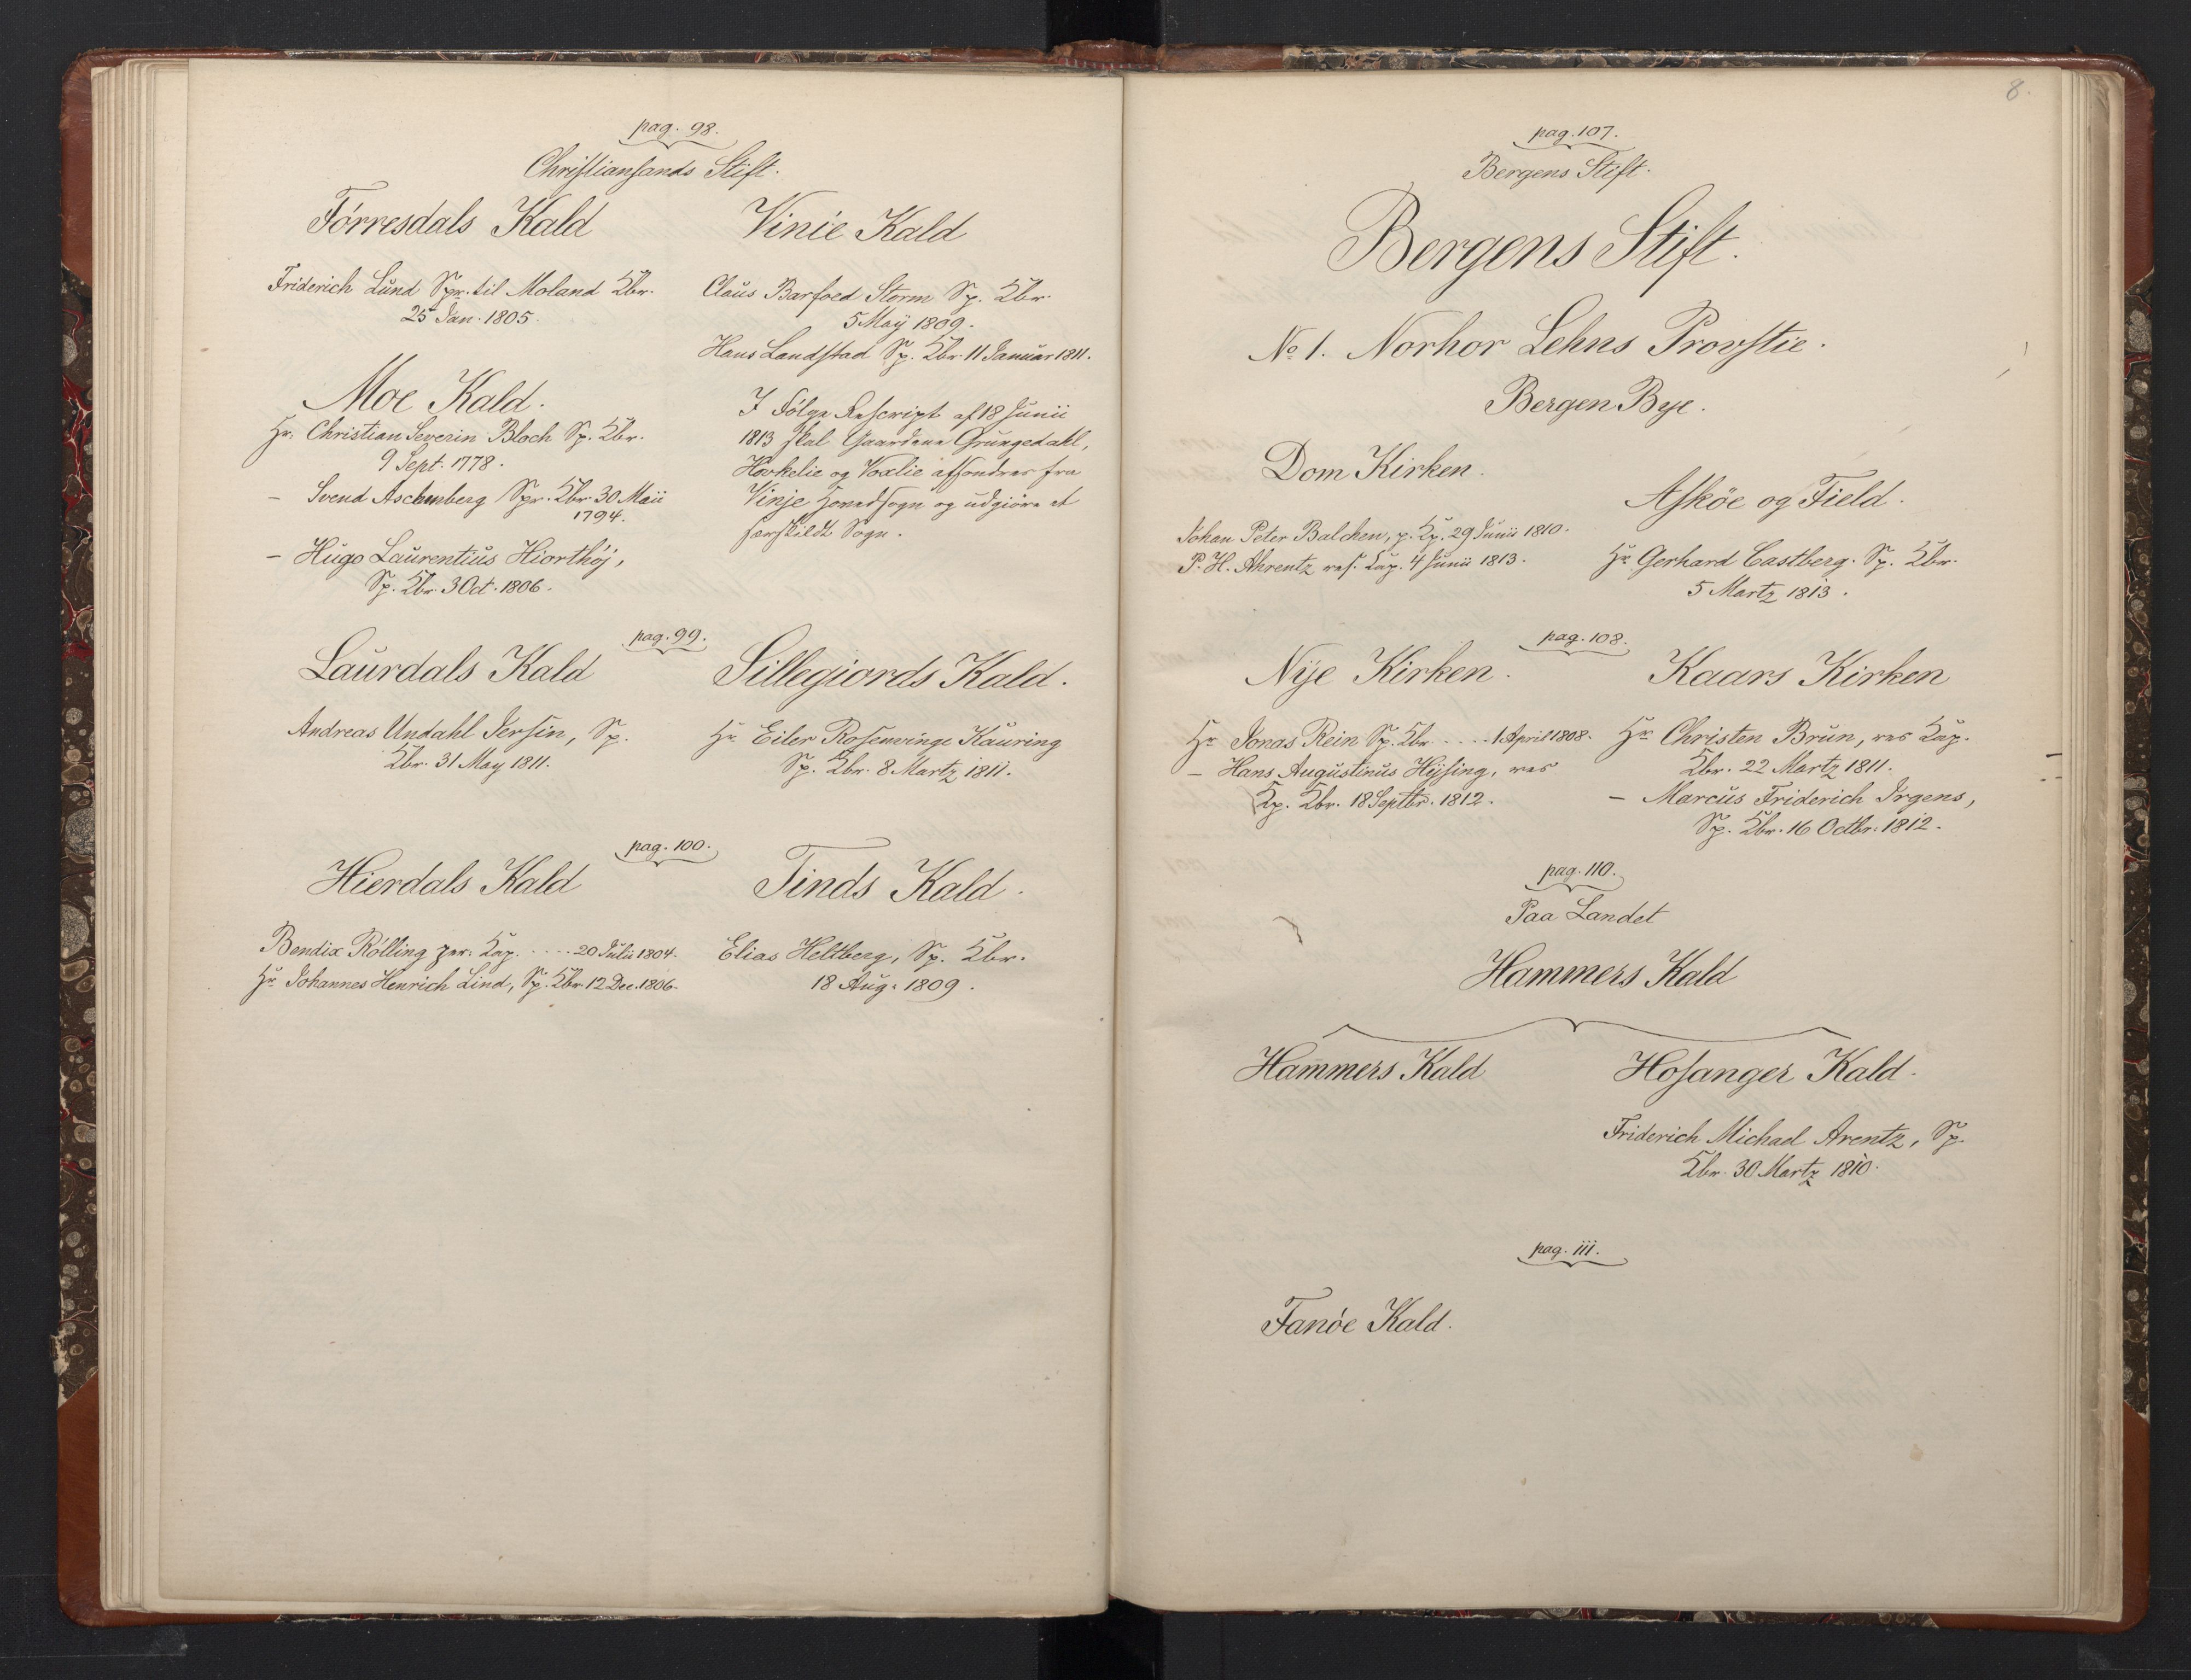 pag. 98.
Christiansands Stift.
Förresdals Kald
Friderich Lund Spr. til Moland Kbr.
25 Jan. 1805.
Moe Kald.
Hr. Christian Severin Bloch Sp. Kbr.
9 Sept. 1778.
- Svend Aschenberg Spr. Kbr. 30 Maii
1794.
- Hugo Laurentius Hiorthöj,
Sp. Kbr. 3 Oct. 1806.
Vinie Kald
Claus Barfoed Storm Sp. Kbr.
5 Maÿ 1809.
Hans Landstad Sp. Kbr. 11 Januar 1811.
I Fölge Rescript af 18 Junii
1813 skal Gaardene Grungedahl,
Haukelie og Voxlie afsondres fra
Vinje Hovedsogn og udgiöre et
særskildt Sogn.
pag. 99.
Laurdals Kald
Andreas Undahl Jersin, Sp.
Kbr. 31 May 1811.
Sillegiords Kald.
Hr. Eiler Rosenvinge Kauring
Sp. Kbr. 8 Martz 1811.
pag. 100.
Hierdals Kald
Bendix Rölling per. Cap. .... 20 Julii 1804.
Hr. Johannes Henrich Lind, Sp. Kbr. 12 Dec. 1806.
Tinds Kald.
Elias Heltberg, Sp. Kbr.
18 Aug. 1809.
8.
pag. 107.
Bergens Stift.
Bergens Stift.
No 1. Norhor Lehns Provstie.
Bergen Bye.
Dom Kirken.
Johan Peter Balchen, p. Kp. 29 Junii 1810.
P. H. Ahrentz res. Cap. 4 Junii 1813.
Asköe og Field.
Hr. Gerhard Castberg. Sp. Kbr.
5 Martz 1813.
pag. 108.
Nÿe Kirken.
Hr. Jonas Rein Sp. Kbr. .... 1 April 1808.
- Hans Augustinus Hÿsing, res
Kp. Kbr. 18 Septbr. 1812.
Kaars Kirken
Hr. Christen Brun, res Cap.
Kbr. 22 Martz 1811.
- Marcus Friderich Irgens,
Sp. Kbr. 16 Octbr. 1812.
pag. 110.
Paa Landet
Hammers Kald
Hammers Kald
Hosanger Kald.
Friderich Michael Arentz, Sp.
Kbr. 30 Martz 1810.
pag. 111.
Fanöe Kald.